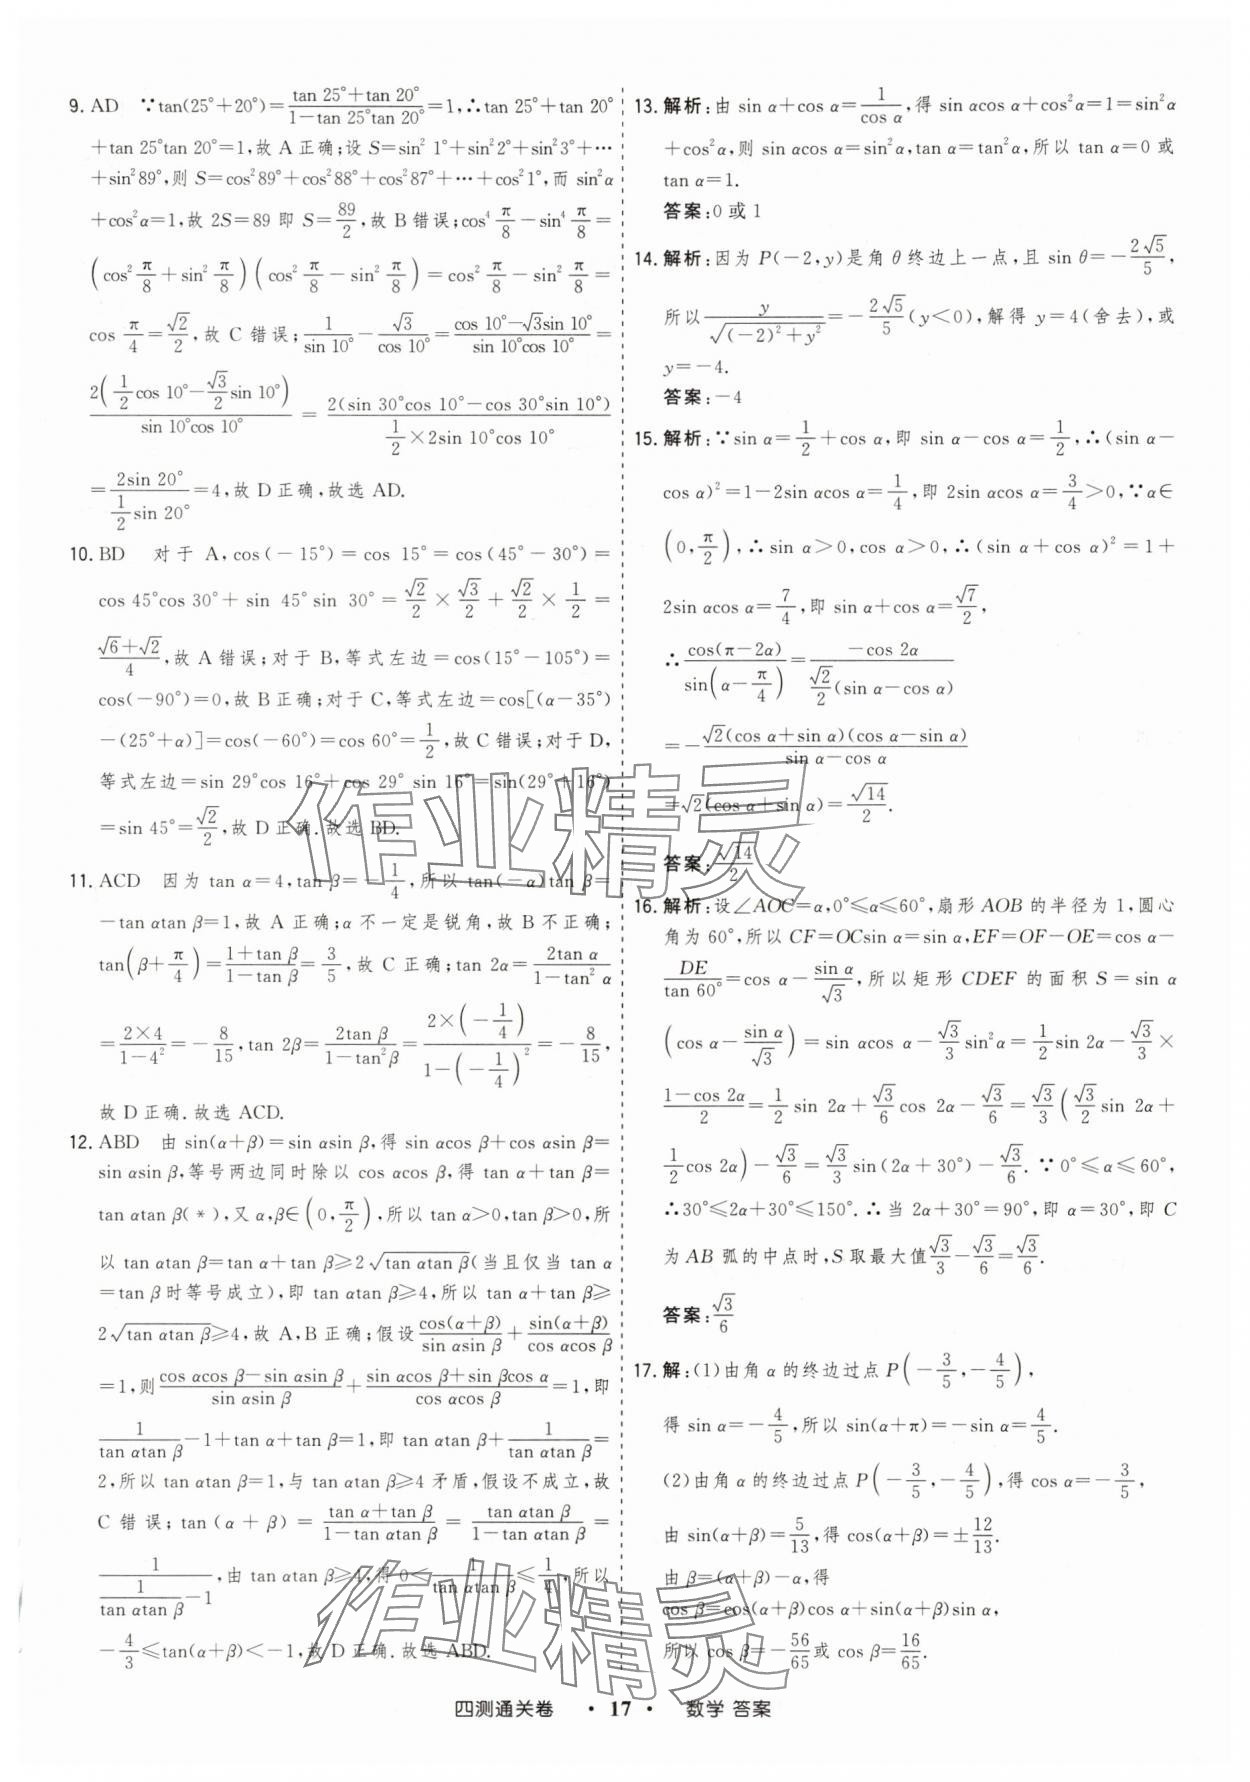 9. AD ∵tan(25°+20°)=(tan 25°+tan 20°)/(1-tan 25°tan 20°)=1,∴tan 25°+tan 20°
+tan 25°tan 20°=1,故 A 正确;设 S=sin² 1°+sin²2°+sin²3°+…
+sin²89°,则 S=cos²89°+cos²88°+cos²87°+…+cos²1°,而 sin²α
+cos²α=1,故 2S=89 即 S=89/2,故 B 错误;cos⁴ π/8-sin⁴ π/8=
(cos² π/8+sin² π/8)(cos² π/8-sin² π/8)=cos² π/8-sin² π/8=
cos π/4=√2/2,故 C 错误;1/sin 10°-√3/cos 10°=(cos 10°-√3sin 10°)/(sin 10°cos 10°)=
2(1/2cos 10°-√3/2sin 10°)/(sin 10°cos 10°)=2(sin 30°cos 10°-cos 30°sin 10°)/(1/2×2sin 10°cos 10°)
=2sin 20°/(1/2sin 20°)=4,故 D 正确,故选 AD.
10. BD 对于 A,cos(-15°)=cos 15°=cos(45°-30°)=
cos 45°cos 30°+sin 45°sin 30°=√2/2×√3/2+√2/2×1/2=
(√6+√2)/4,故 A 错误;对于 B,等式左边=cos(15°-105°)=
cos(-90°)=0,故 B 正确;对于 C,等式左边=cos[(α-35°)
-(25°+α)]=cos(-60°)=cos 60°=1/2,故 C 错误;对于 D,
等式左边=sin 29°cos 16°+cos 29°sin 16°=sin(29°+16°)
=sin 45°=√2/2,故 D 正确.故选 BD.
11. ACD 因为 tan α=4,tan β=-1/4,所以 tan(-α)tan β=
-tan αtan β=1,故 A 正确;α 不一定是锐角,故 B 不正确;
tan(β+π/4)=(1+tan β)/(1-tan β)=3/5,故 C 正确;tan 2α=2tan α/(1-tan² α)
=(2×4)/(1-4²)=-8/15,tan 2β=2tan β/(1-tan²β)=2×(-1/4)/(1-(-1/4)²)=-8/15,
故 D 正确.故选 ACD.
12. ABD 由 sin(α+β)=sin αsin β,得 sin αcos β+cos αsin β=
sin αsin β,等号两边同时除以 cos αcos β,得 tan α+tan β=
tan αtan β(*),又 α,β∈(0,π/2),所以 tan α>0,tan β>0,所
以 tan αtan β=tan α+tan β≥2√(tan αtan β)(当且仅当 tan α
=tan β时等号成立),即 tan αtan β≥4,所以 tan α+tan β≥
2√(tan αtan β)≥4,故 A,B 正确;假设cos(α+β)/(sin αsin β)+sin(α+β)/(cos αcos β)
=1,则(cos αcos β-sin αsin β)/(sin αsin β)+(sin αcos β+sin βcos α)/(cos αcos β)=1,即
1/(tan αtan β)-1+tan α+tan β=1,即 tan αtan β+1/(tan αtan β)=
2,所以 tan αtan β=1,与 tan αtan β≥4 矛盾,假设不成立,故
C 错误;tan(α+β)=(tan α+tan β)/(1-tan αtan β)=tan αtan β/(1-tan αtan β)=
1/(1/(tan αtan β)-1),由 tan αtan β≥4,得 0<1/(tan αtan β)≤1/4,所以
-4/3≤tan(α+β)<-1,故 D 正确.故选 ABD.
13. 解析:由 sin α+cos α=1/cos α,得 sin αcos α+cos²α=1=sin²α
+cos²α,则 sin αcos α=sin²α,tan α=tan²α,所以 tan α=0 或
tan α=1.
答案:0 或 1
14. 解析:因为 P(-2,y)是角 θ 终边上一点,且 sin θ=-2√5/5,
所以y/√((-2)²+y²)=-2√5/5(y<0),解得 y=4(舍去),或
y=-4.
答案:-4
15. 解析:∵sin α=1/2+cos α,即 sin α-cos α=1/2,∴(sin α-
cos α)²=1-2sin αcos α=1/4,即 2sin αcos α=3/4>0,∵α∈
(0,π/2),∴sin α>0,cos α>0,∴(sin α+cos α)²=1+
2sin αcos α=7/4,即 sin α+cos α=√7/2,
∴cos(π-2α)/sin(α-π/4)=-cos 2α/(√2/2(sin α-cos α))
=-√2(cos α+sin α)(cos α-sin α)/(sin α-cos α)
=√2(cos α+sin α)=√14/2.
答案:√14/2
16. 解析:设∠AOC=α,0°≤α≤60°,扇形 AOB 的半径为 1,圆心
角为 60°,所以 CF=OCsin α=sin α,EF=OF-OE=cos α-
DE/tan 60°=cos α-sin α/√3,所以矩形 CDEF 的面积 S=sin α
(cos α-sin α/√3)=sin αcos α-√3/3sin²α=1/2sin 2α-√3/3×
(1-cos 2α)/2=1/2sin 2α+√3/6cos 2α-√3/6=√3/3(√3/2sin 2α+
1/2cos 2α)-√3/6=√3/3sin(2α+30°)-√3/6.∵0°≤α≤60°,
∴30°≤2α+30°≤150°.∴当 2α+30°=90°,即 α=30°,即 C
为 AB 弧的中点时,S 取最大值√3/3-√3/6=√3/6.
答案:√3/6
17. 解:(1)由角 α 的终边过点 P(-3/5,-4/5),
得 sin α=-4/5,所以 sin(α+π)=-sin α=4/5.
(2)由角 α 的终边过点 P(-3/5,-4/5),得 cos α=-3/5,
由 sin(α+β)=5/13,得 cos(α+β)=±12/13.
由 β=(α+β)-α,得
cos β=cos(α+β)cos α+sin(α+β)sin α,
所以 cos β=-56/65或 cos β=16/65.
四测通关卷 · 17 · 数学 答案
作业精灵
作业精灵